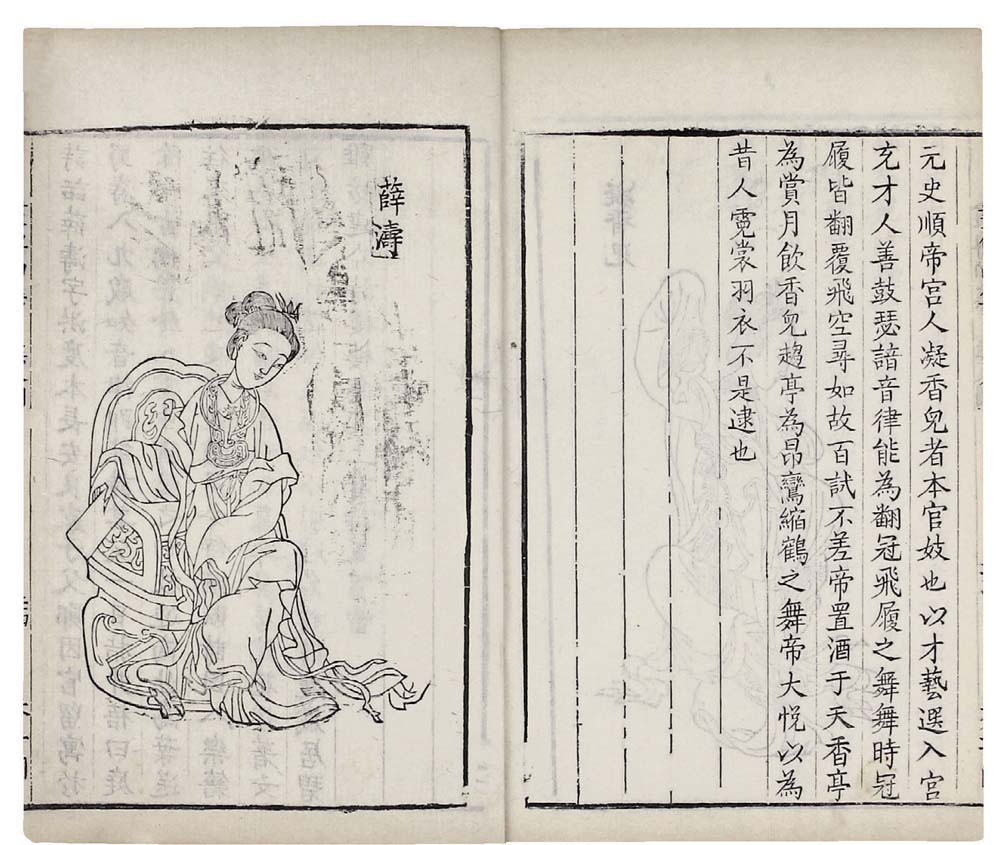 元史順帝宮人凝香兒者本官妓也以才藝選入宮
充才人善鼓瑟諳音律能為翻冠飛履之舞舞時冠
履皆翻覆飛空尋如故百試不差帝置酒于天香亭
為賞月飲香兒趨亭為昂鸞縮鶴之舞帝大悅以為
昔人霓裳羽衣不是逮也
薛濤